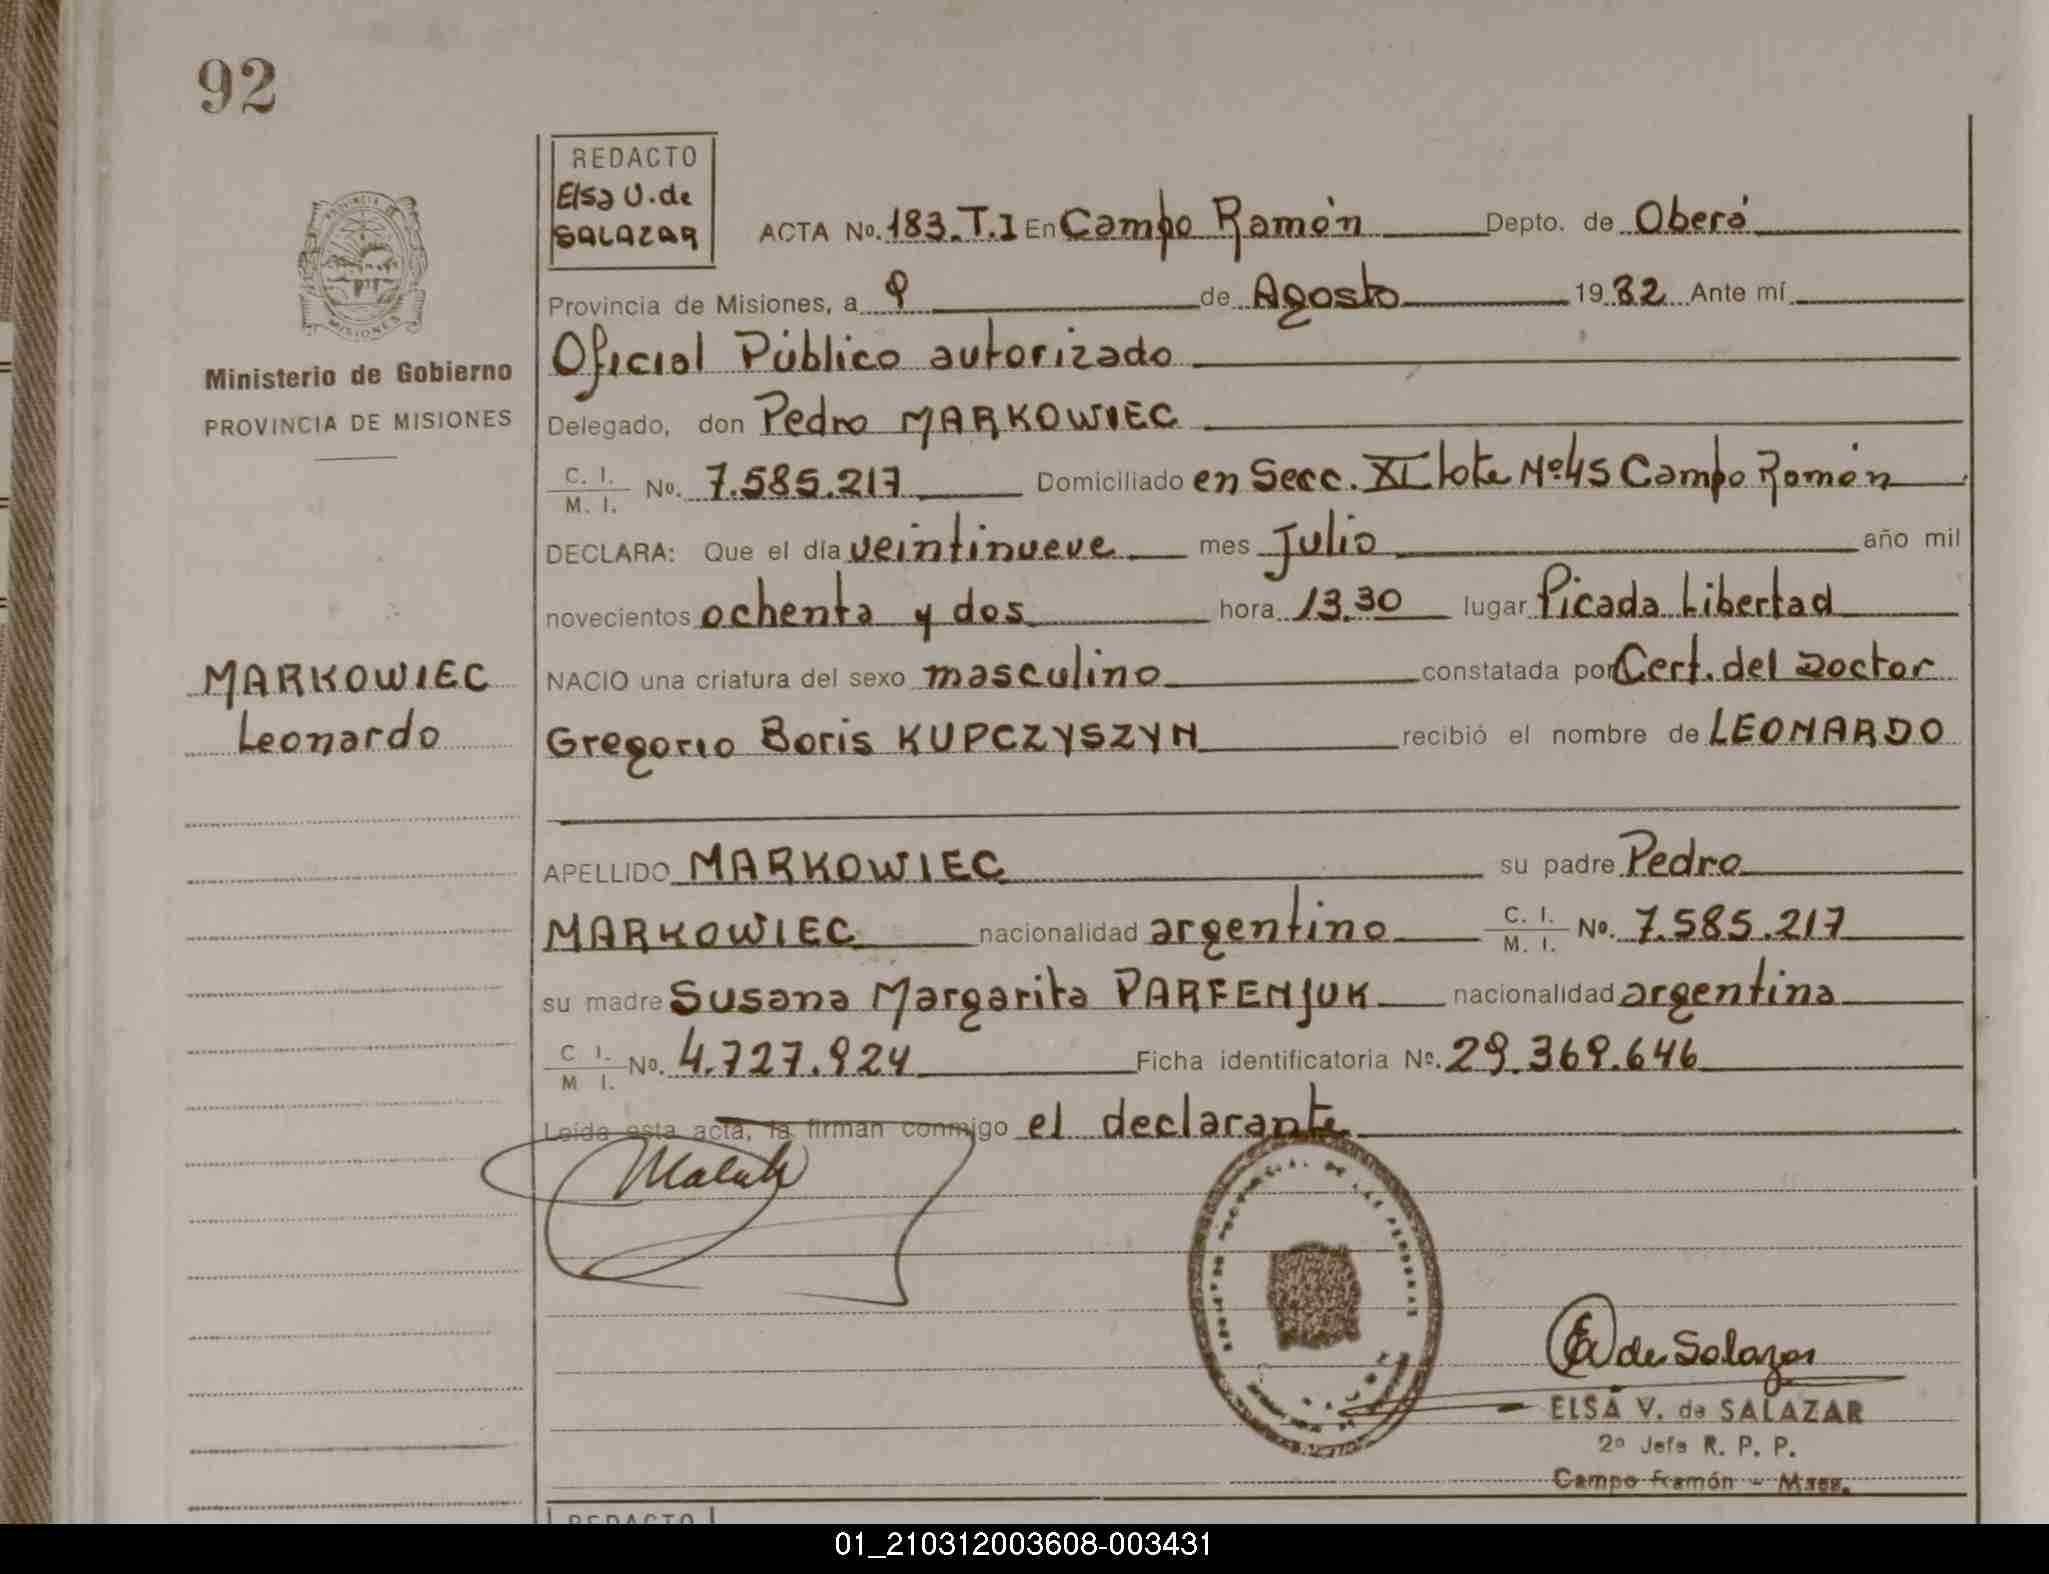 92
REDACTO
Elsa V. de
SALAZAR
ACTA No. 183.T.I En Campo Ramón Depto. de Oberá
Provincia de Misiones, a 9 de Agosto 1982 Ante mí
Oficial Público autorizado
Ministerio de Gobierno
PROVINCIA DE MISIONES
Delegado, don Pedro MARKOWIEC
C. I.
M. I. No. 7.585.217 Domiciliado en Secc. XI lote Nº 45 Campo Ramón
DECLARA: Que el día veintinueve mes Julio año mil
novecientos ochenta y dos hora 13.30 lugar Picada Libertad
MARKOWIEC
Leonardo
NACIO una criatura del sexo masculino constatada por Cert. del Doctor
Gregorio Boris KUPCZYSZYN recibió el nombre de LEONARDO
APELLIDO MARKOWIEC su padre Pedro
MARKOWIEC nacionalidad argentino C. I. M. I. No. 7.585.217
su madre Susana Margarita PARFENJUK nacionalidad argentina
C I. M I. No. 4.727.924 Ficha identificatoria Nº. 29.369.646
Leída esta acta, la firman conmigo el declarante
de Salazar
ELSA V. de SALAZAR
2º Jefe R. P. P.
Campo Ramón - Mnes.
REDACTO
01_210312003608-003431